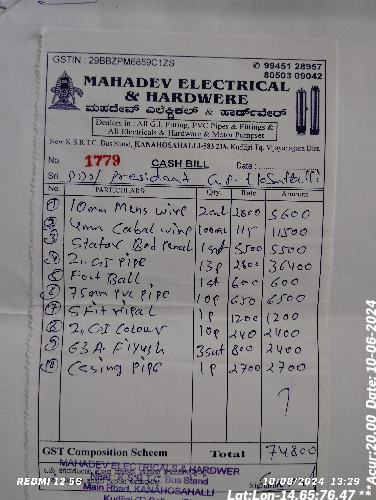 GSTIN : 29BBZPM6859C1ZS
✆ 99451 28957
80503 09042
MAHADEV ELECTRICAL
& HARDWERE
ಮಹದೇವ್ ಎಲೆಕ್ಟ್ರಿಕಲ್ & ಹಾರ್ಡ್‌ವೇರ್
Dealers in : All G.I. Fitting, PVC Pipes & Fittings &
All Electricals & Hardware & Motor Pumpset
New K.S.R.T.C. Bus Stand, KANAHOSAHALLI-583 218. Kudligi Tq. Vijayanagara Dist.
No 1779 CASH BILL Date :
Sri PDO/ President
PARTICULARS Qty. Rate Amount
1 10mm Mens wire 2 2800 5600
2 4mm Cabal wire 100m 115 11500
3 Stator Bod 1 5500 5500
4 2" GI Pipe 13p 2800 36400
5 Foot Ball 1 600 600
6 75mm PVC Pipe 10p 650 6500
7 1p 1200 1200
8 2" GI Colour 10p 240 2400
9 63A 3 800 2400
10 Casing Pipe 1p 2700 2700
GST Composition Scheem Total 74800
MAHADEV ELECTRICALS & HARDWER
Near Bus Stand
Main Road, KANAHOSAHALLI
REDMI 12 5G
10/06/2024 13:29
Lat:Lon-14.65:76.47**
Acur:20.00 Date:10-06-2024